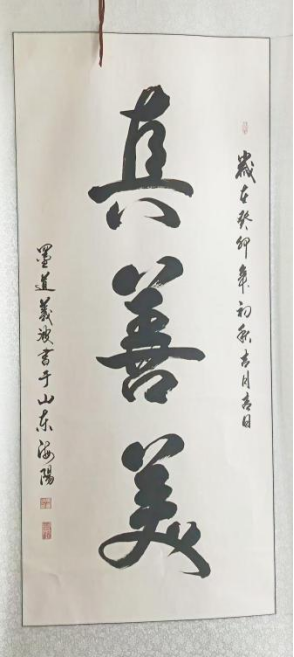 歲在癸卯年初秋吉月吉日
真善美
墨道義波書于山东海陽